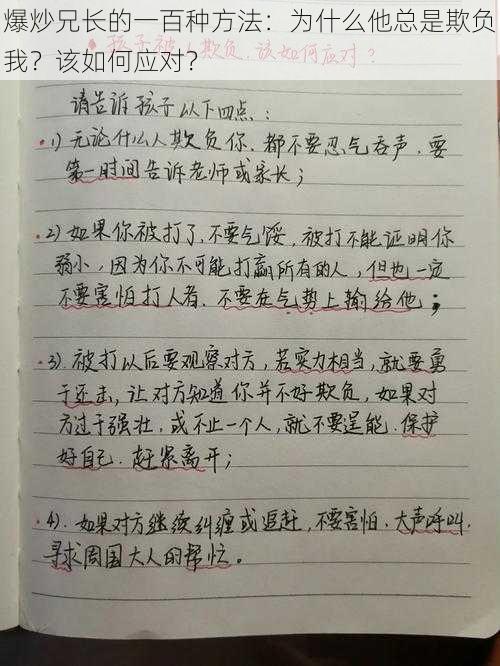 爆炒兄长的一百种方法：为什么他总是欺负
我？该如何应对？
孩子被人欺负，该如何应对？
请告诉孩子以下四点：
1) 无论什么人欺负你、都不要忍气吞声，要
第一时间告诉老师或家长；
2) 如果你被打了，不要气馁，被打不能证明你
弱小，因为你不可能打赢所有的人，但也一定
不要害怕打人者．不要在气势上输给他；
3). 被打以后要观察对方，若实力相当，就要勇
于还击，让对方知道你并不好欺负，如果对
方过于强壮，或不止一个人，就不要逞能．保护
好自己．赶紧离开；
4). 如果对方继续纠缠或追赶，不要害怕．大声呼叫．
寻求周围大人的帮忙。